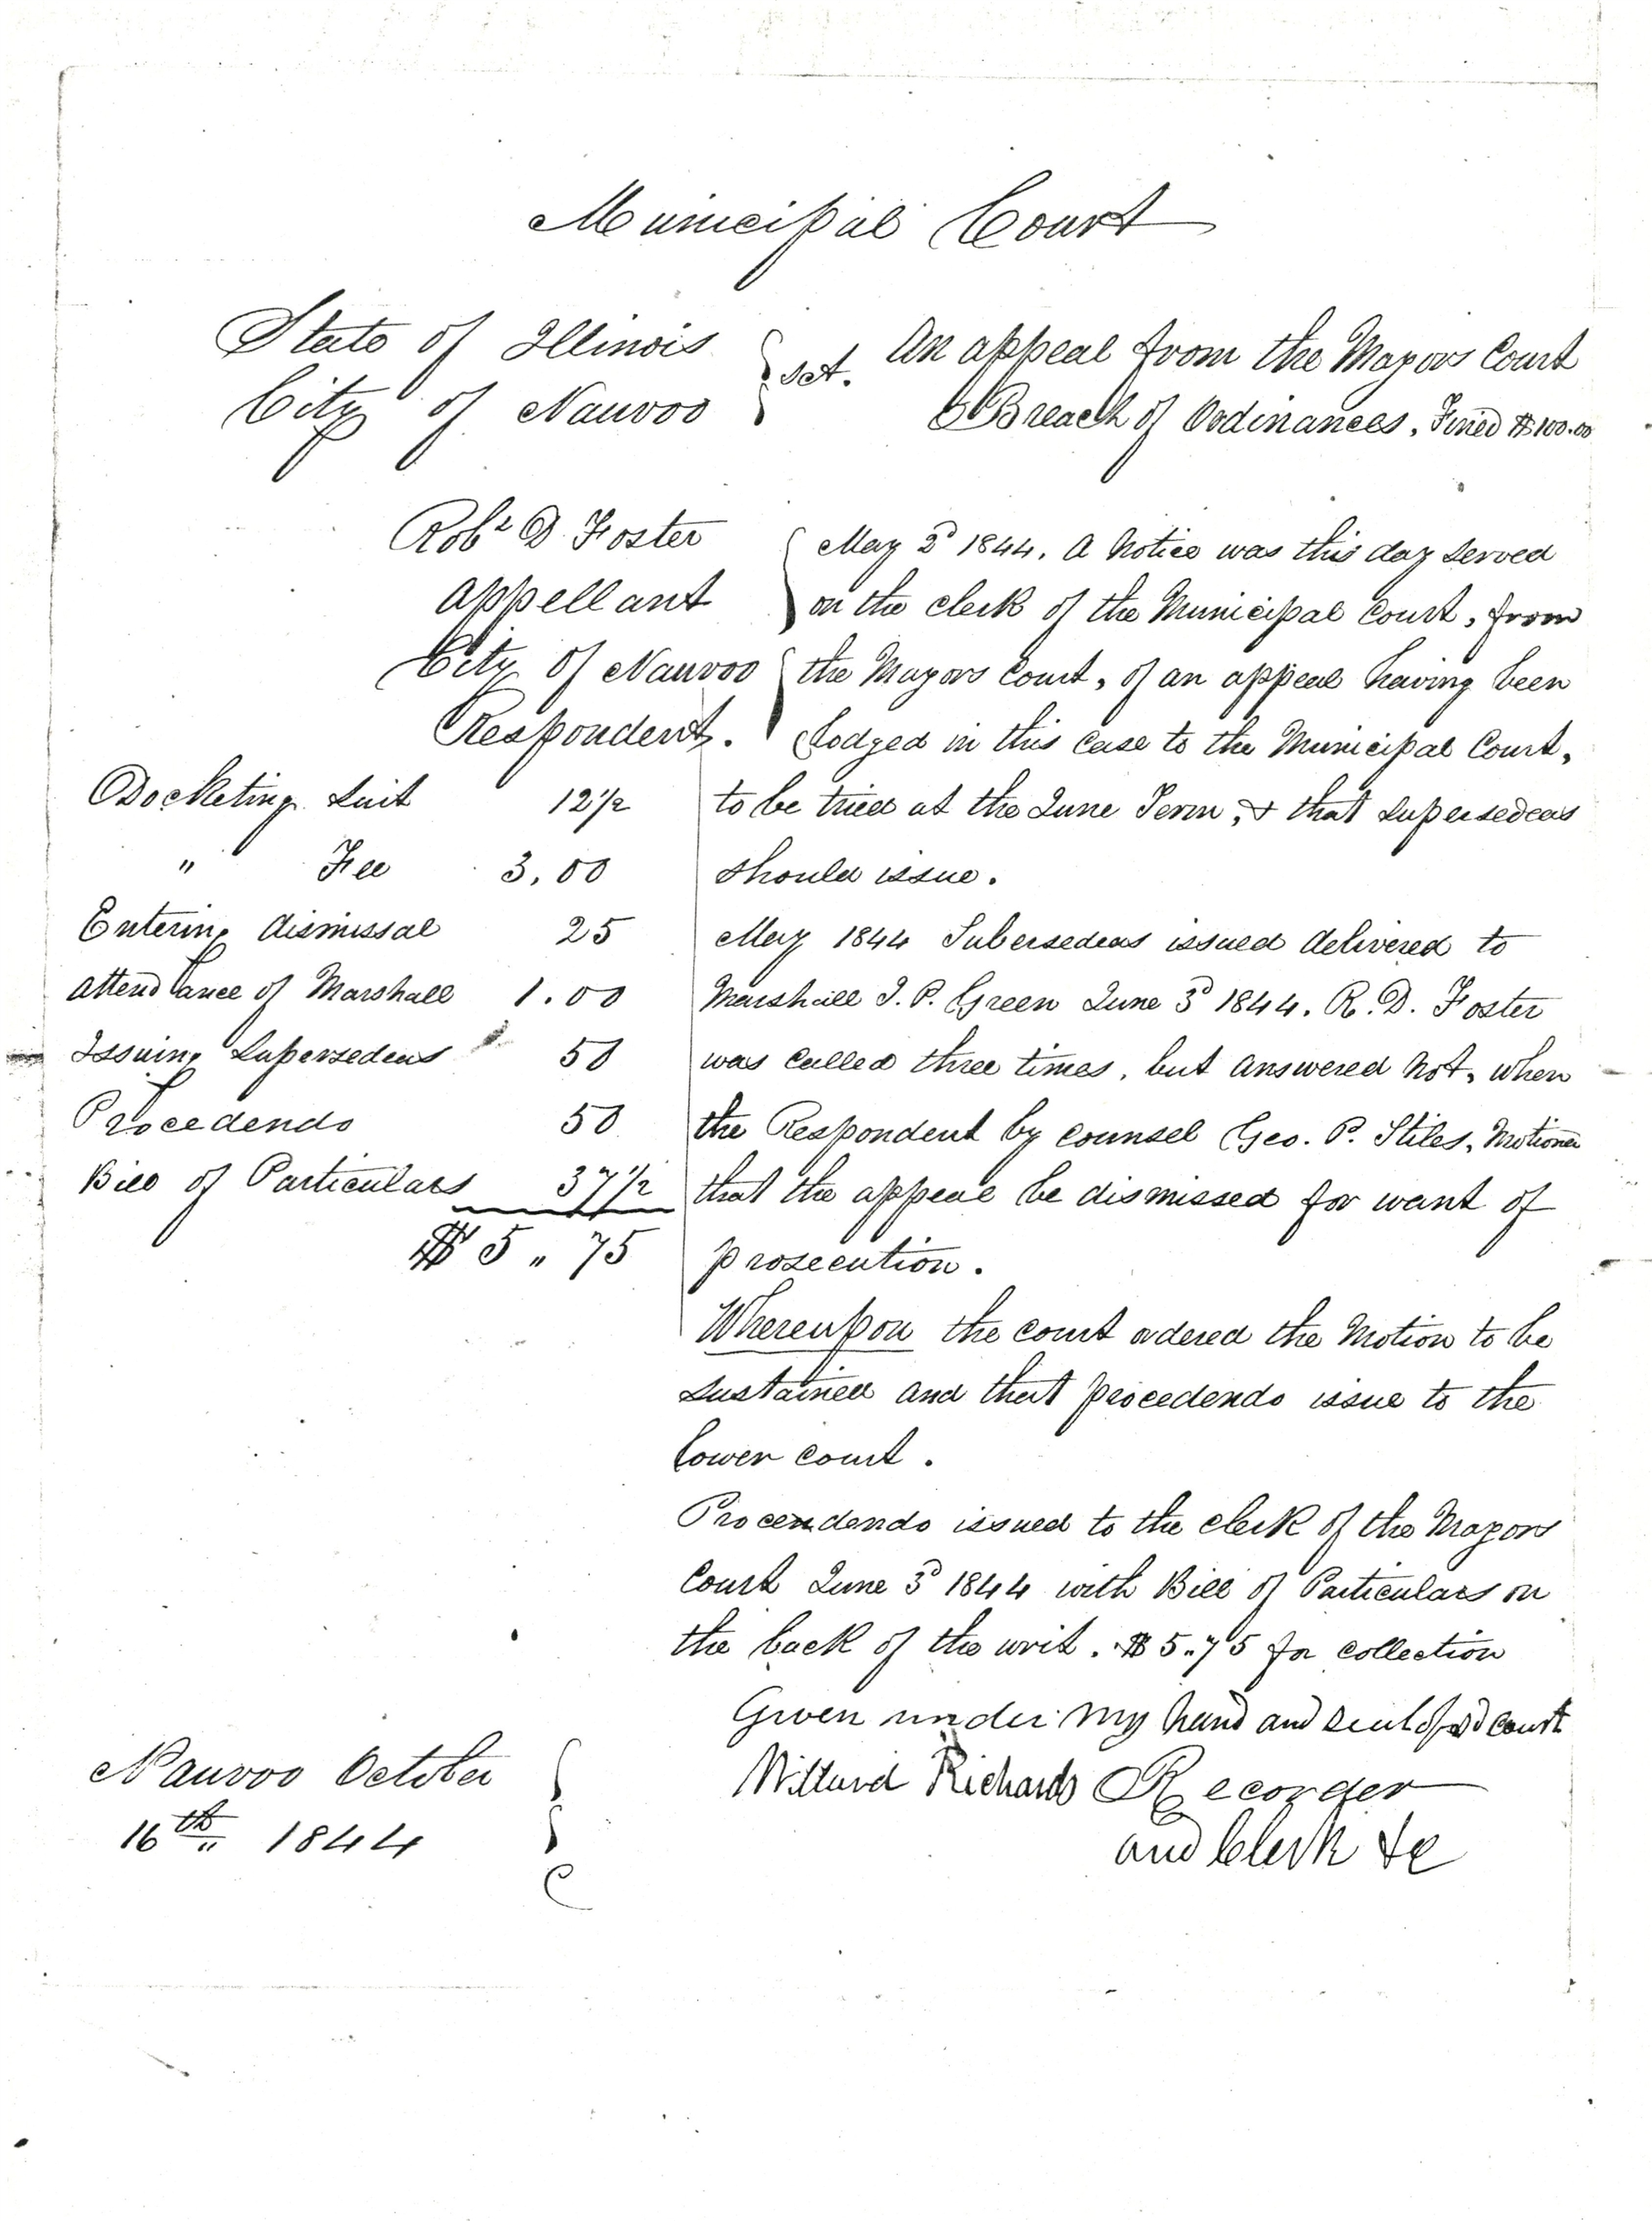 Municipal Court
State of Illinois
City of Nauvoo
sct.
An appeal from the Mayors Court
Breach of Ordinances. Fined $100.00
Robt D. Foster
appellant
City of Nauvoo
Respondent.
May 2d 1844. A Notice was this day served
on the clerk of the Municipal Court, from
the Mayors Court, of an appeal having been
lodged in this case to the Municipal Court,
to be tried at the June Term, & that supersedeas
should issue.
May 1844 Supersedeas issued delivered to
Marshall J. P. Green June 3d 1844. R. D. Foster
was called three times, but answered not, when
the Respondent by counsel Geo. P. Stiles, Motioned
that the appeal be dismissed for want of
prosecution.
Whereupon the court ordered the Motion to be
sustained and that procedendo issue to the
lower court.
Procendendo issued to the clerk of the Mayors
Court June 3d 1844 with Bill of Particulars on
the back of the writ. $5.75 for collection
Docketing suit 12 1/2
" Fee 3.00
Entering dismissal 25
attendance of Marshall 1.00
Issuing Supersedeas 50
Procedendo 50
Bill of Particulars 37 1/2
$5 " 75
Given under my hand and seal of sd court
Willard Richards Recorder
and Clerk &c
Nauvoo October
16th 1844